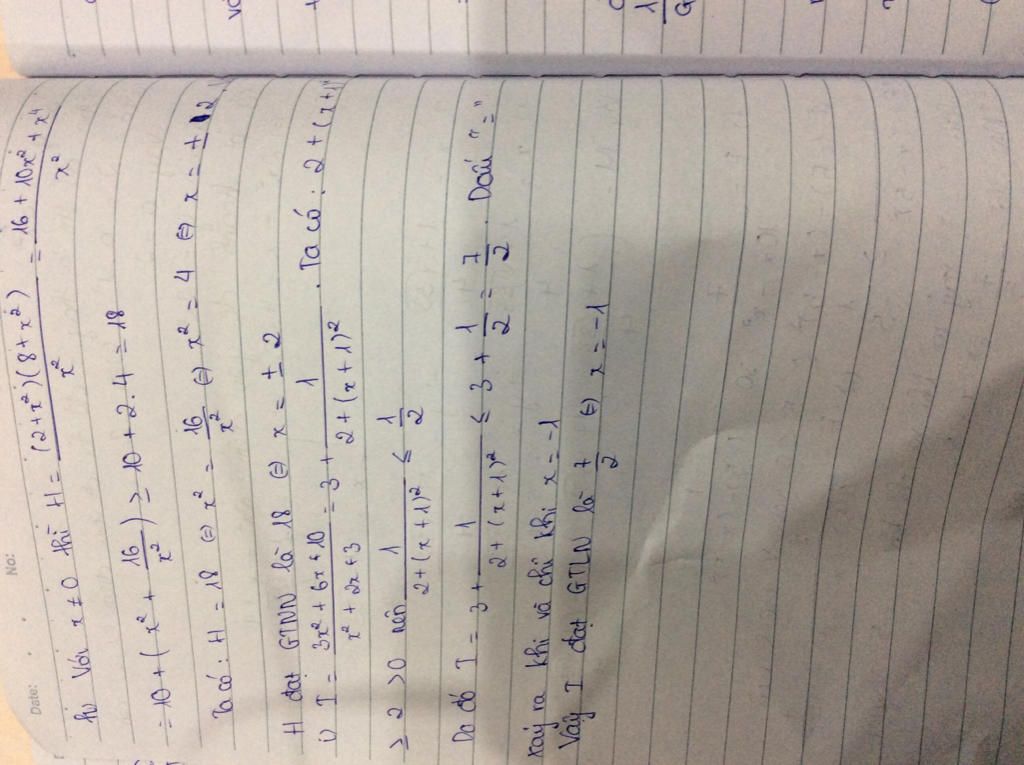 Date: No:
h) Với x ≠ 0 thì H = (2 + x²)(8 + x²) / x² = 16 + 10x² + x⁴ / x²
= 10 + (x² + 16/x²) ≥ 10 + 2.4 = 18
Ta có : H = 18 ⇔ x² = 16/x² ⇔ x² = 4 ⇔ x = ± 2
H đạt GTNN là 18 ⇔ x = ± 2
i) I = 3x² + 6x + 10 / x² + 2x + 3 = 3 + 1 / 2 + (x + 1)² . Ta có : 2 + (x + 1)
≥ 2 > 0 nên 1 / 2 + (x + 1)² ≤ 1/2
Do đó I = 3 + 1 / 2 + (x + 1)² ≤ 3 + 1/2 = 7/2 . Dấu "="
xảy ra khi và chỉ khi x = -1
Vậy I đạt GTLN là 7/2 ⇔ x = -1